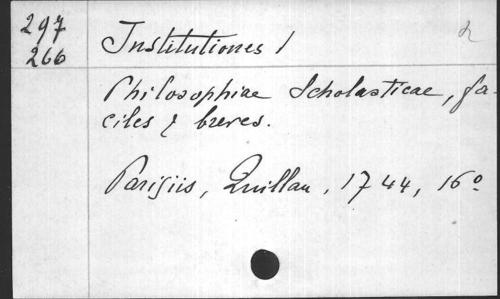 297
266
Institutiones /
Philosophiae Scholasticae, fa-
ciles & breves.
Parisiis, Quillau, 1744, 16º